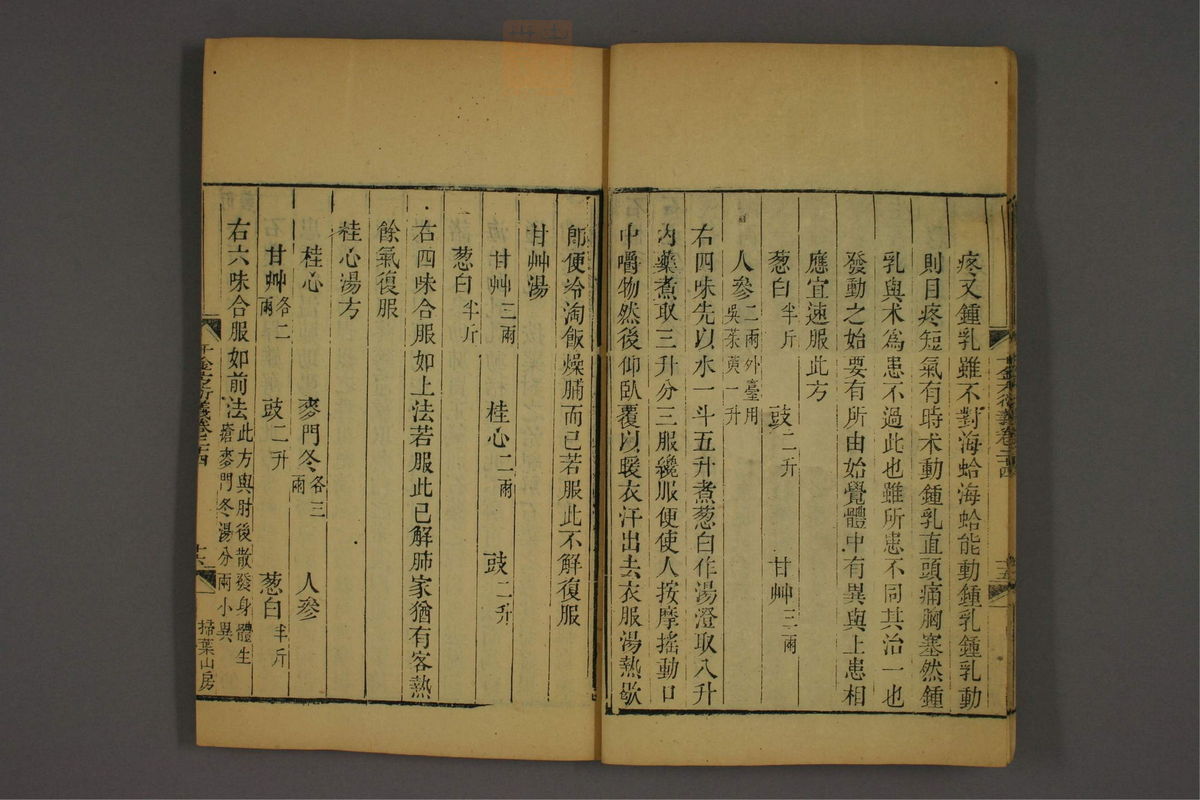 疼又鍾乳雖不對海蛤海蛤能動鍾乳鍾乳動
則目疼短氣有時朮動鍾乳直頭痛胸塞然鍾
乳與朮為患不過此也雖所患不同其治一也
發動之始要有所由始覺體中有異與上患相
應宜速服此方
葱白半斤 豉二升 甘艸三兩
人參二兩外臺用吳茱萸一升
右四味先以水一斗五升煮葱白作湯澄取八升
內藥煮取三升分三服纔服便使人按摩搖動口
中嚼物然後仰臥覆以暖衣汗出去衣服湯熱歇
即便冷淘飯燥脯而已若服此不解復服
甘艸湯
甘艸三兩 桂心二兩 豉二升
葱白半斤
右四味合服如上法若服此已解肺家猶有客熱
餘氣復服
桂心湯方
桂心 麥門冬各三兩 人參
甘艸各二兩 豉二升 葱白半斤
右六味合服如前法此方與肘後散發身體生瘡麥門冬湯分兩小異
千金方衍義卷二十四 十六 掃葉山房